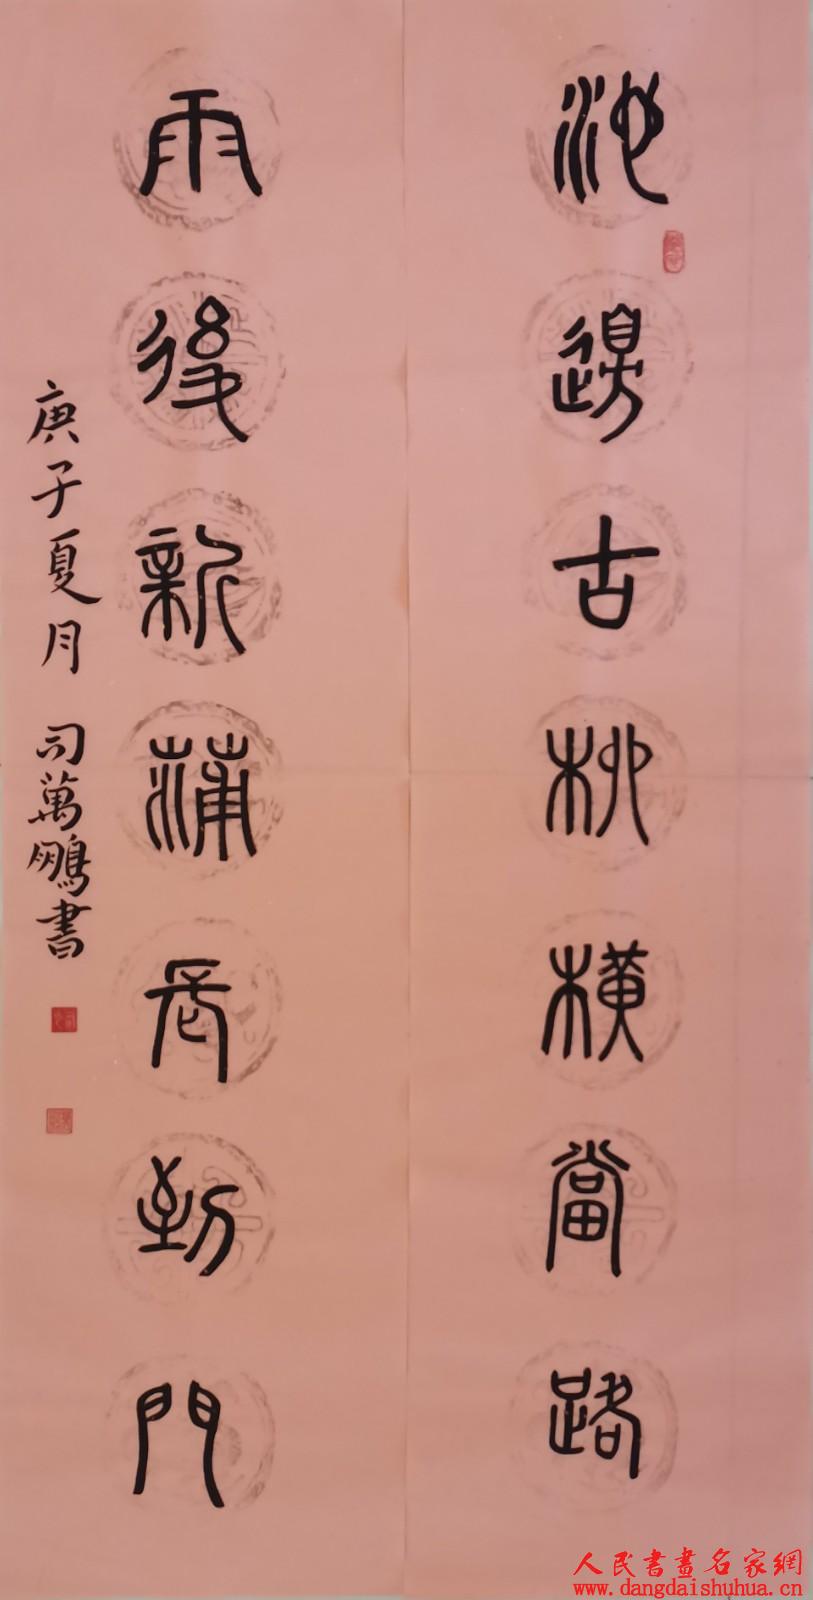 池邊古桃橫當路
雨後新蒲長到門
庚子夏月 司萬鵬書
人民書畫名家網
www.dangdaishuhua.cn